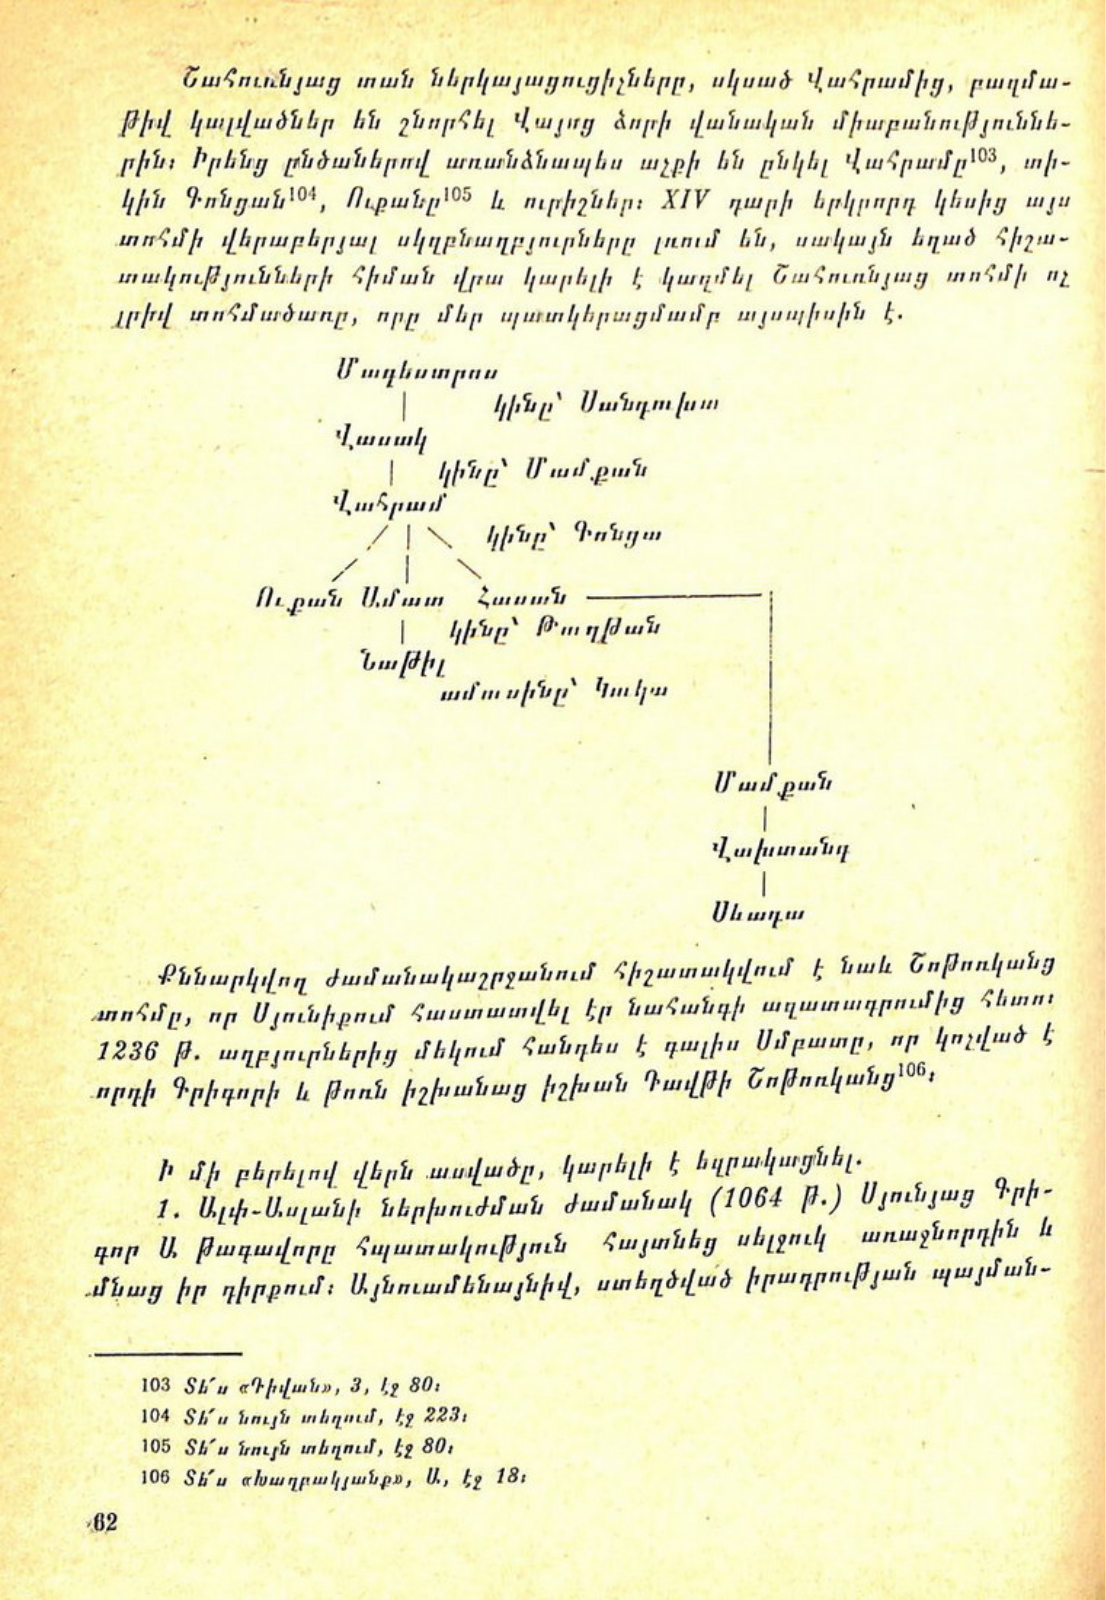 Շահուռնյաց տան ներկայացուցիչները, սկսած Վահրամից, բազմա-
թիվ կալվածներ են շնորհել Վայոց ձորի վանական միաբանություննե-
րին։ Իրենց ընծաներով առանձնապես աչքի են ընկել Վահրամը103, տի-
կին Գոնցան104, Ուքանը105 և ուրիշներ։ XIV դարի երկրորդ կեսից այս
տոհմի վերաբերյալ սկզբնաղբյուրները լռում են, սակայն եղած հիշա-
տակությունների հիման վրա կարելի է կազմել Շահուռնյաց տոհմի ոչ
լրիվ տոհմածառը, որը մեր պատկերացմամբ այսպիսին է.
Մագեստրոս
կինը՝ Սանդուխտ
Վասակ
կինը՝ Մամքան
Վահրամ
կինը՝ Գոնցա
Ուքան Ամատ Հասան
կինը՝ Թաղթան
Նաթիլ
ամուսինը՝ Կուկա
Մամքան
Վախտանգ
Սևադա
Քննարկվող ժամանակաշրջանում հիշատակվում է նաև Շոթոռկանց
տոհմը, որ Սյունիքում հաստատվել էր նահանգի ազատագրումից հետո։
1236 թ. աղբյուրներից մեկում հանդես է գալիս Սմբատը, որ կոչված է
որդի Գրիգորի և թոռն իշխանաց իշխան Դավթի Շոթոռկանց106։
Ի մի բերելով վերն ասվածը, կարելի է եզրակացնել.
1. Ալփ-Ասլանի ներխուժման ժամանակ (1064 թ.) Սյունյաց Գրի-
գոր Ա թագավորը հպատակություն հայտնեց սելջուկ առաջնորդին և
մնաց իր դիրքում։ Այնուամենայնիվ, ստեղծված իրադրության պայման-
103 Տե՛ս «Դիվան», 3, էջ 80։
104 Տե՛ս նույն տեղում, էջ 223։
105 Տե՛ս նույն տեղում, էջ 80։
106 Տե՛ս «Խաղբակյանք», Ա, էջ 18։
62